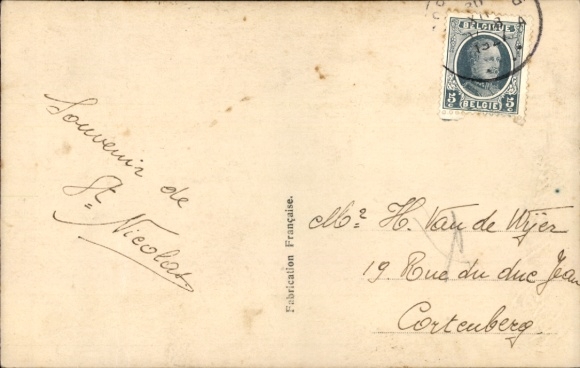 Souvenir de
St Nicolas
Fabrication Française.
BELGIQUE
5c 5c
BELGIË
Mr H. Van de Wijer
19 Rue du duc Jean
Cortenberg.